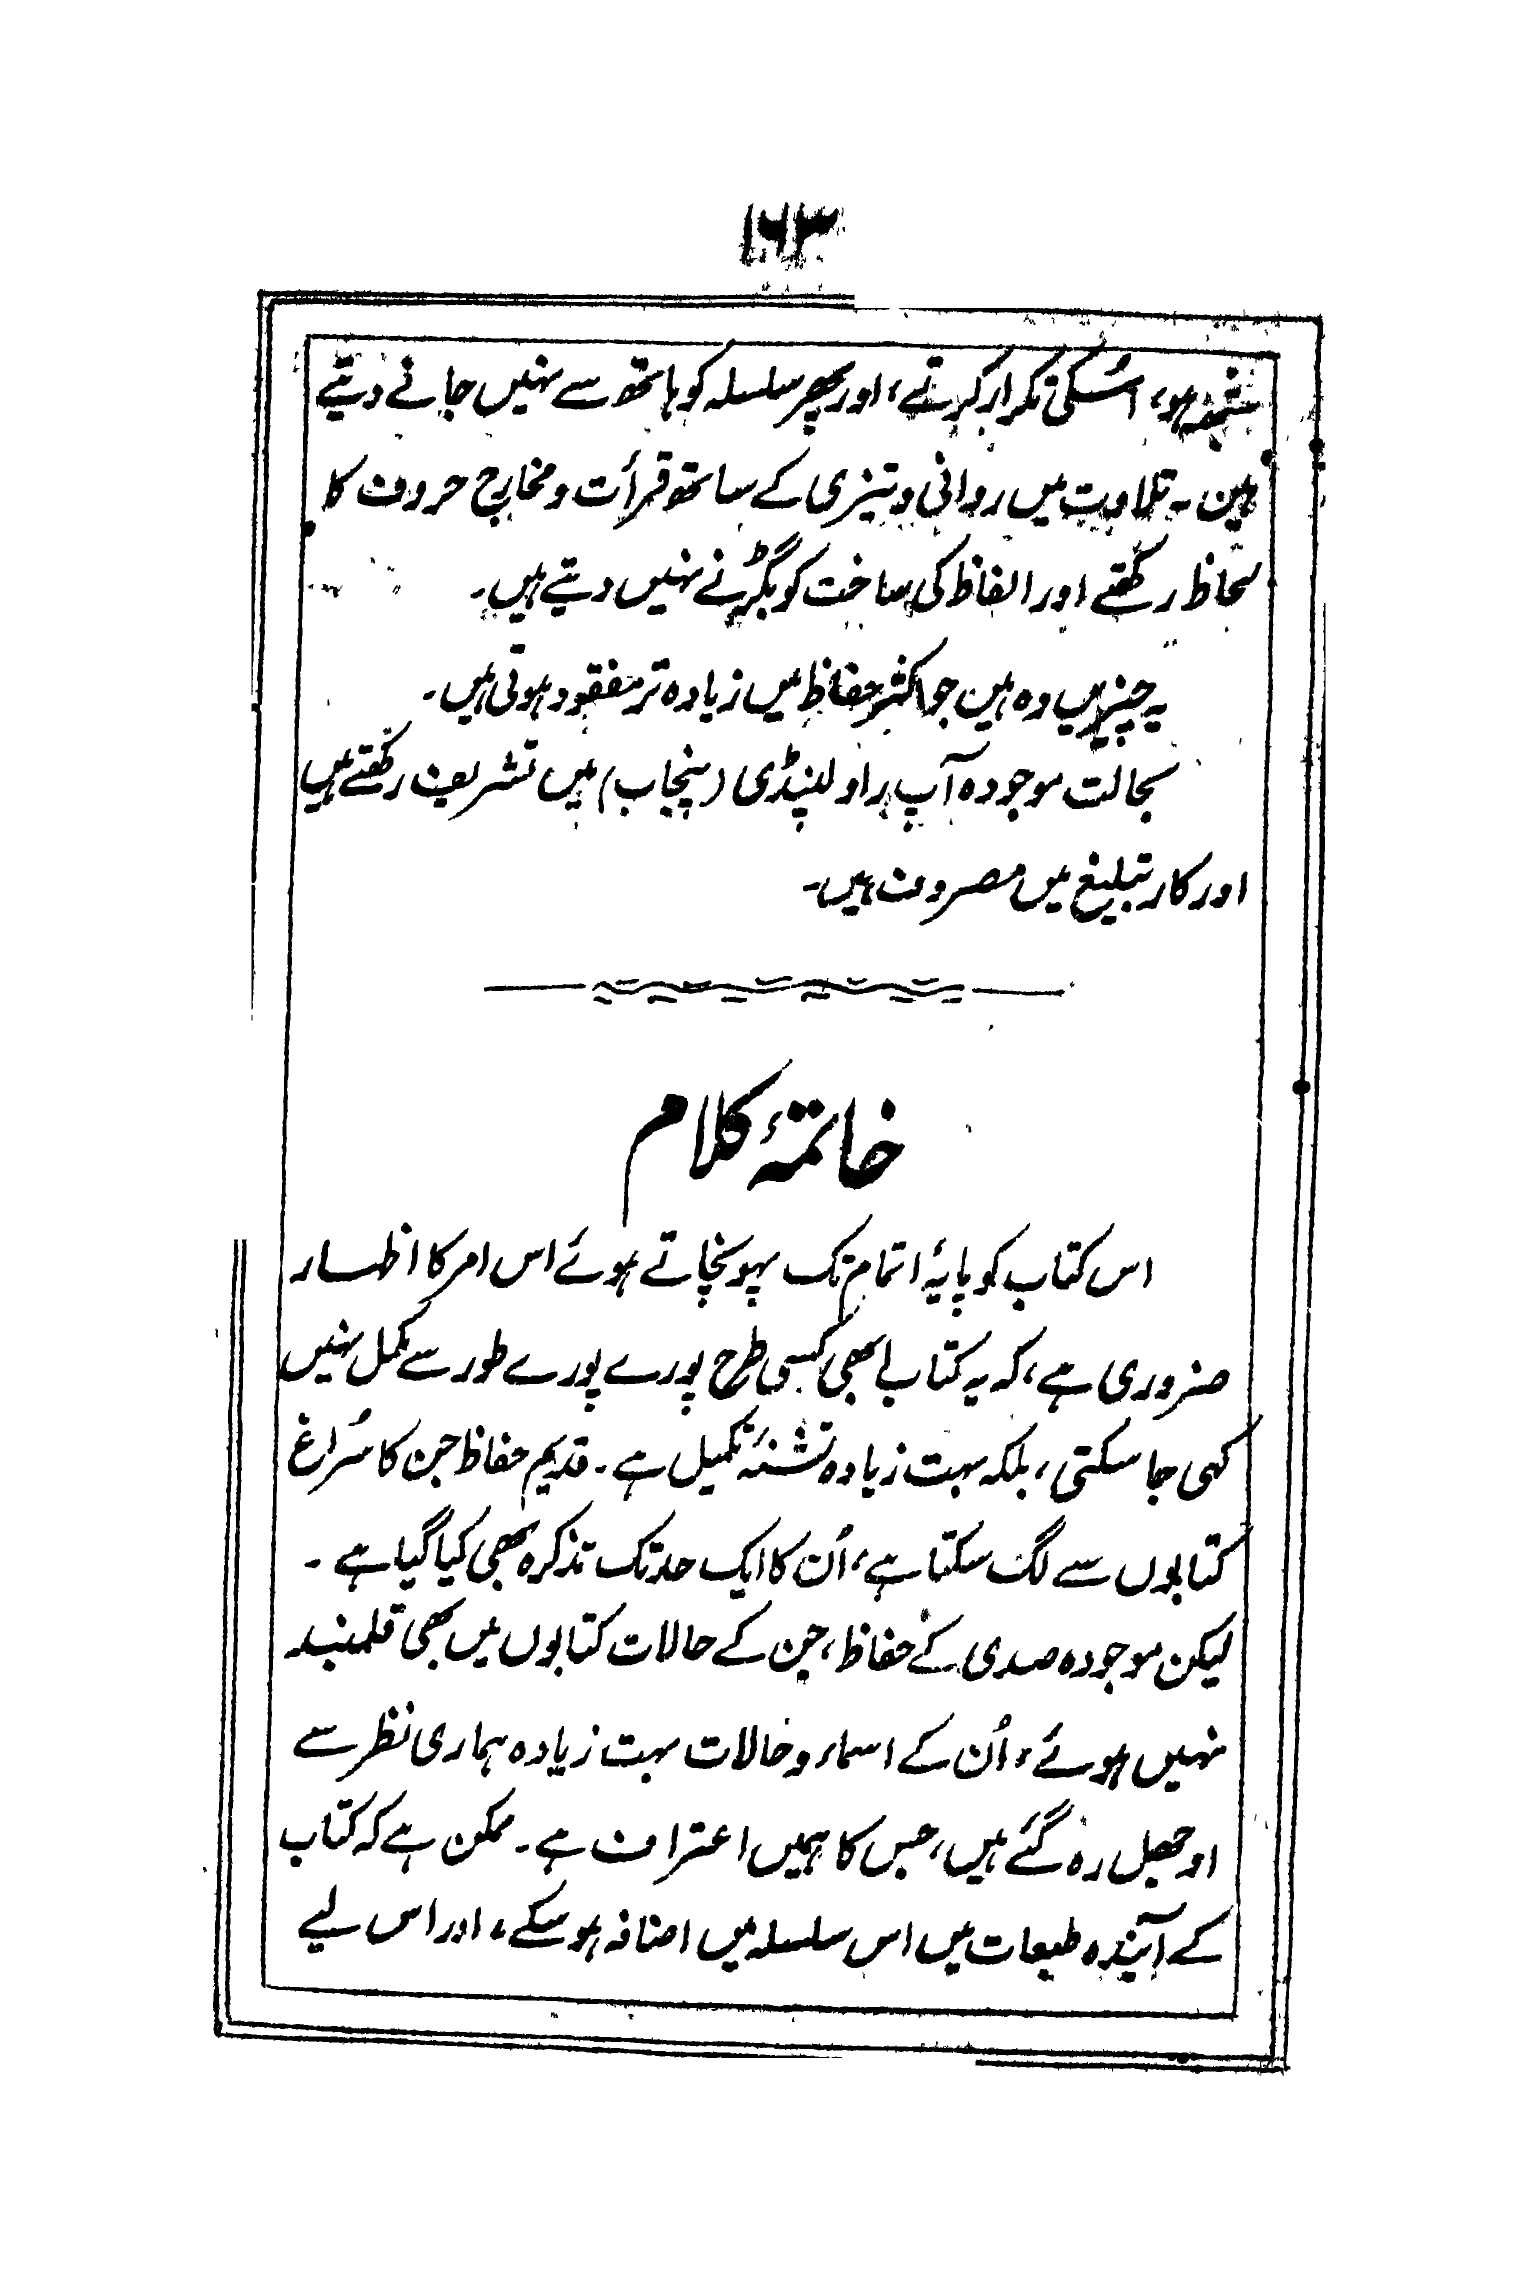 ۱۶۳
ہو، اُسکی تکرار کرتے، اور پھر سلسلہ کو ہاتھ سے نہیں جانے دیتے
ہین۔ تلاوت میں روانی و تیزی کے ساتھ قرأت و مخارج حروف کا
لحاظ رکھتے اور الفاظ کی ساخت کو بگڑنے نہیں دیتے ہیں۔
یہ چیزیں وہ ہین جو اکثر حفاظ میں زیادہ تر مفقود ہوتی ہیں۔
بحالت موجودہ آپ راولپنڈی (پنجاب) میں تشریف رکھتے ہیں
اور کار تبلیغ میں مصروف ہیں۔
خاتمۂ کلام
اس کتاب کو پایۂ اتمام تک پہونچاتے ہوئے اس امر کا اظہار
ضروری ہے، کہ یہ کتاب ابھی کسی طرح پورے پورے طور سے مکمل نہیں
کہی جا سکتی، بلکہ بہت زیادہ تشنۂ تکمیل ہے۔ قدیم حفاظ جن کا سُراغ
کتابوں سے لگ سکتا ہے، اُن کا ایک حد تک تذکرہ بھی کیا گیا ہے۔
لیکن موجودہ صدی کے حفاظ، جن کے حالات کتابوں میں بھی قلمبند
نہیں ہوئے، اُن کے اسماء و حالات بہت زیادہ ہماری نظر سے
اوجھل رہ گئے ہیں، جس کا ہمیں اعتراف ہے۔ ممکن ہے کہ کتاب
کے آیندہ طبعات میں اس سلسلہ میں اضافہ ہو سکے، اور اس لیے